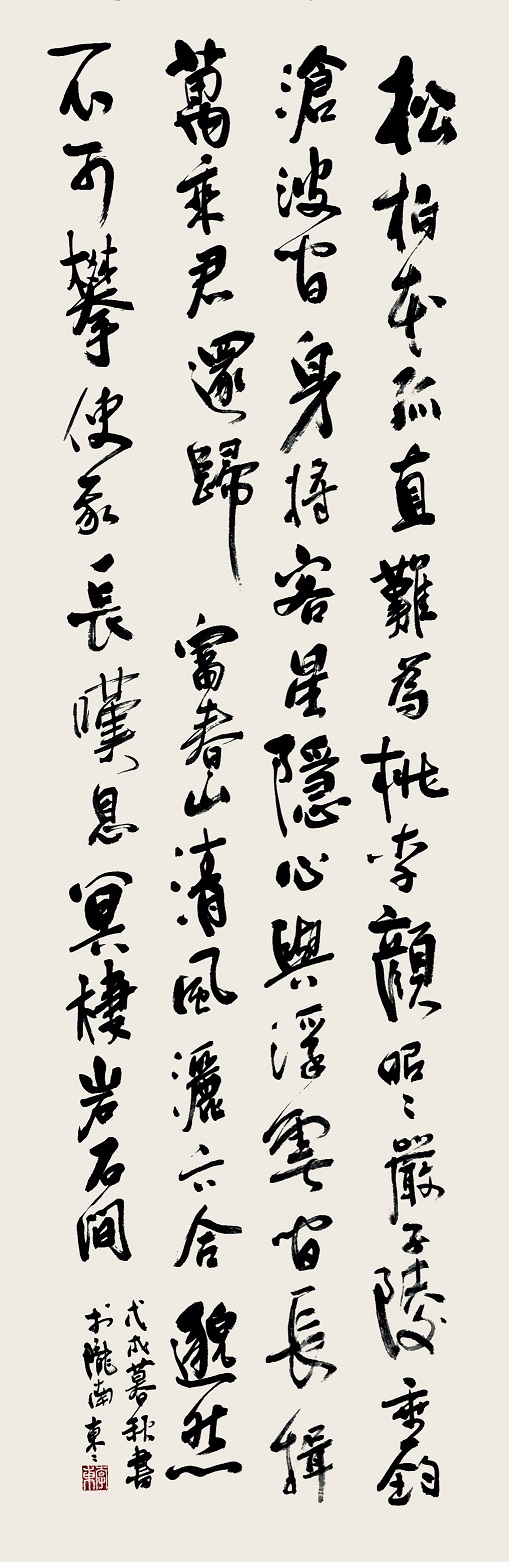 松柏本孤直難為桃李顏昭〻嚴子陵垂鈎
滄波間身將客星隱心與浮雲間長揖
萬乘君還歸富春山清風灑六合邈然
不可攀使我長嘆息冥棲岩石間
戊戌暮秋書
於隴南東〻